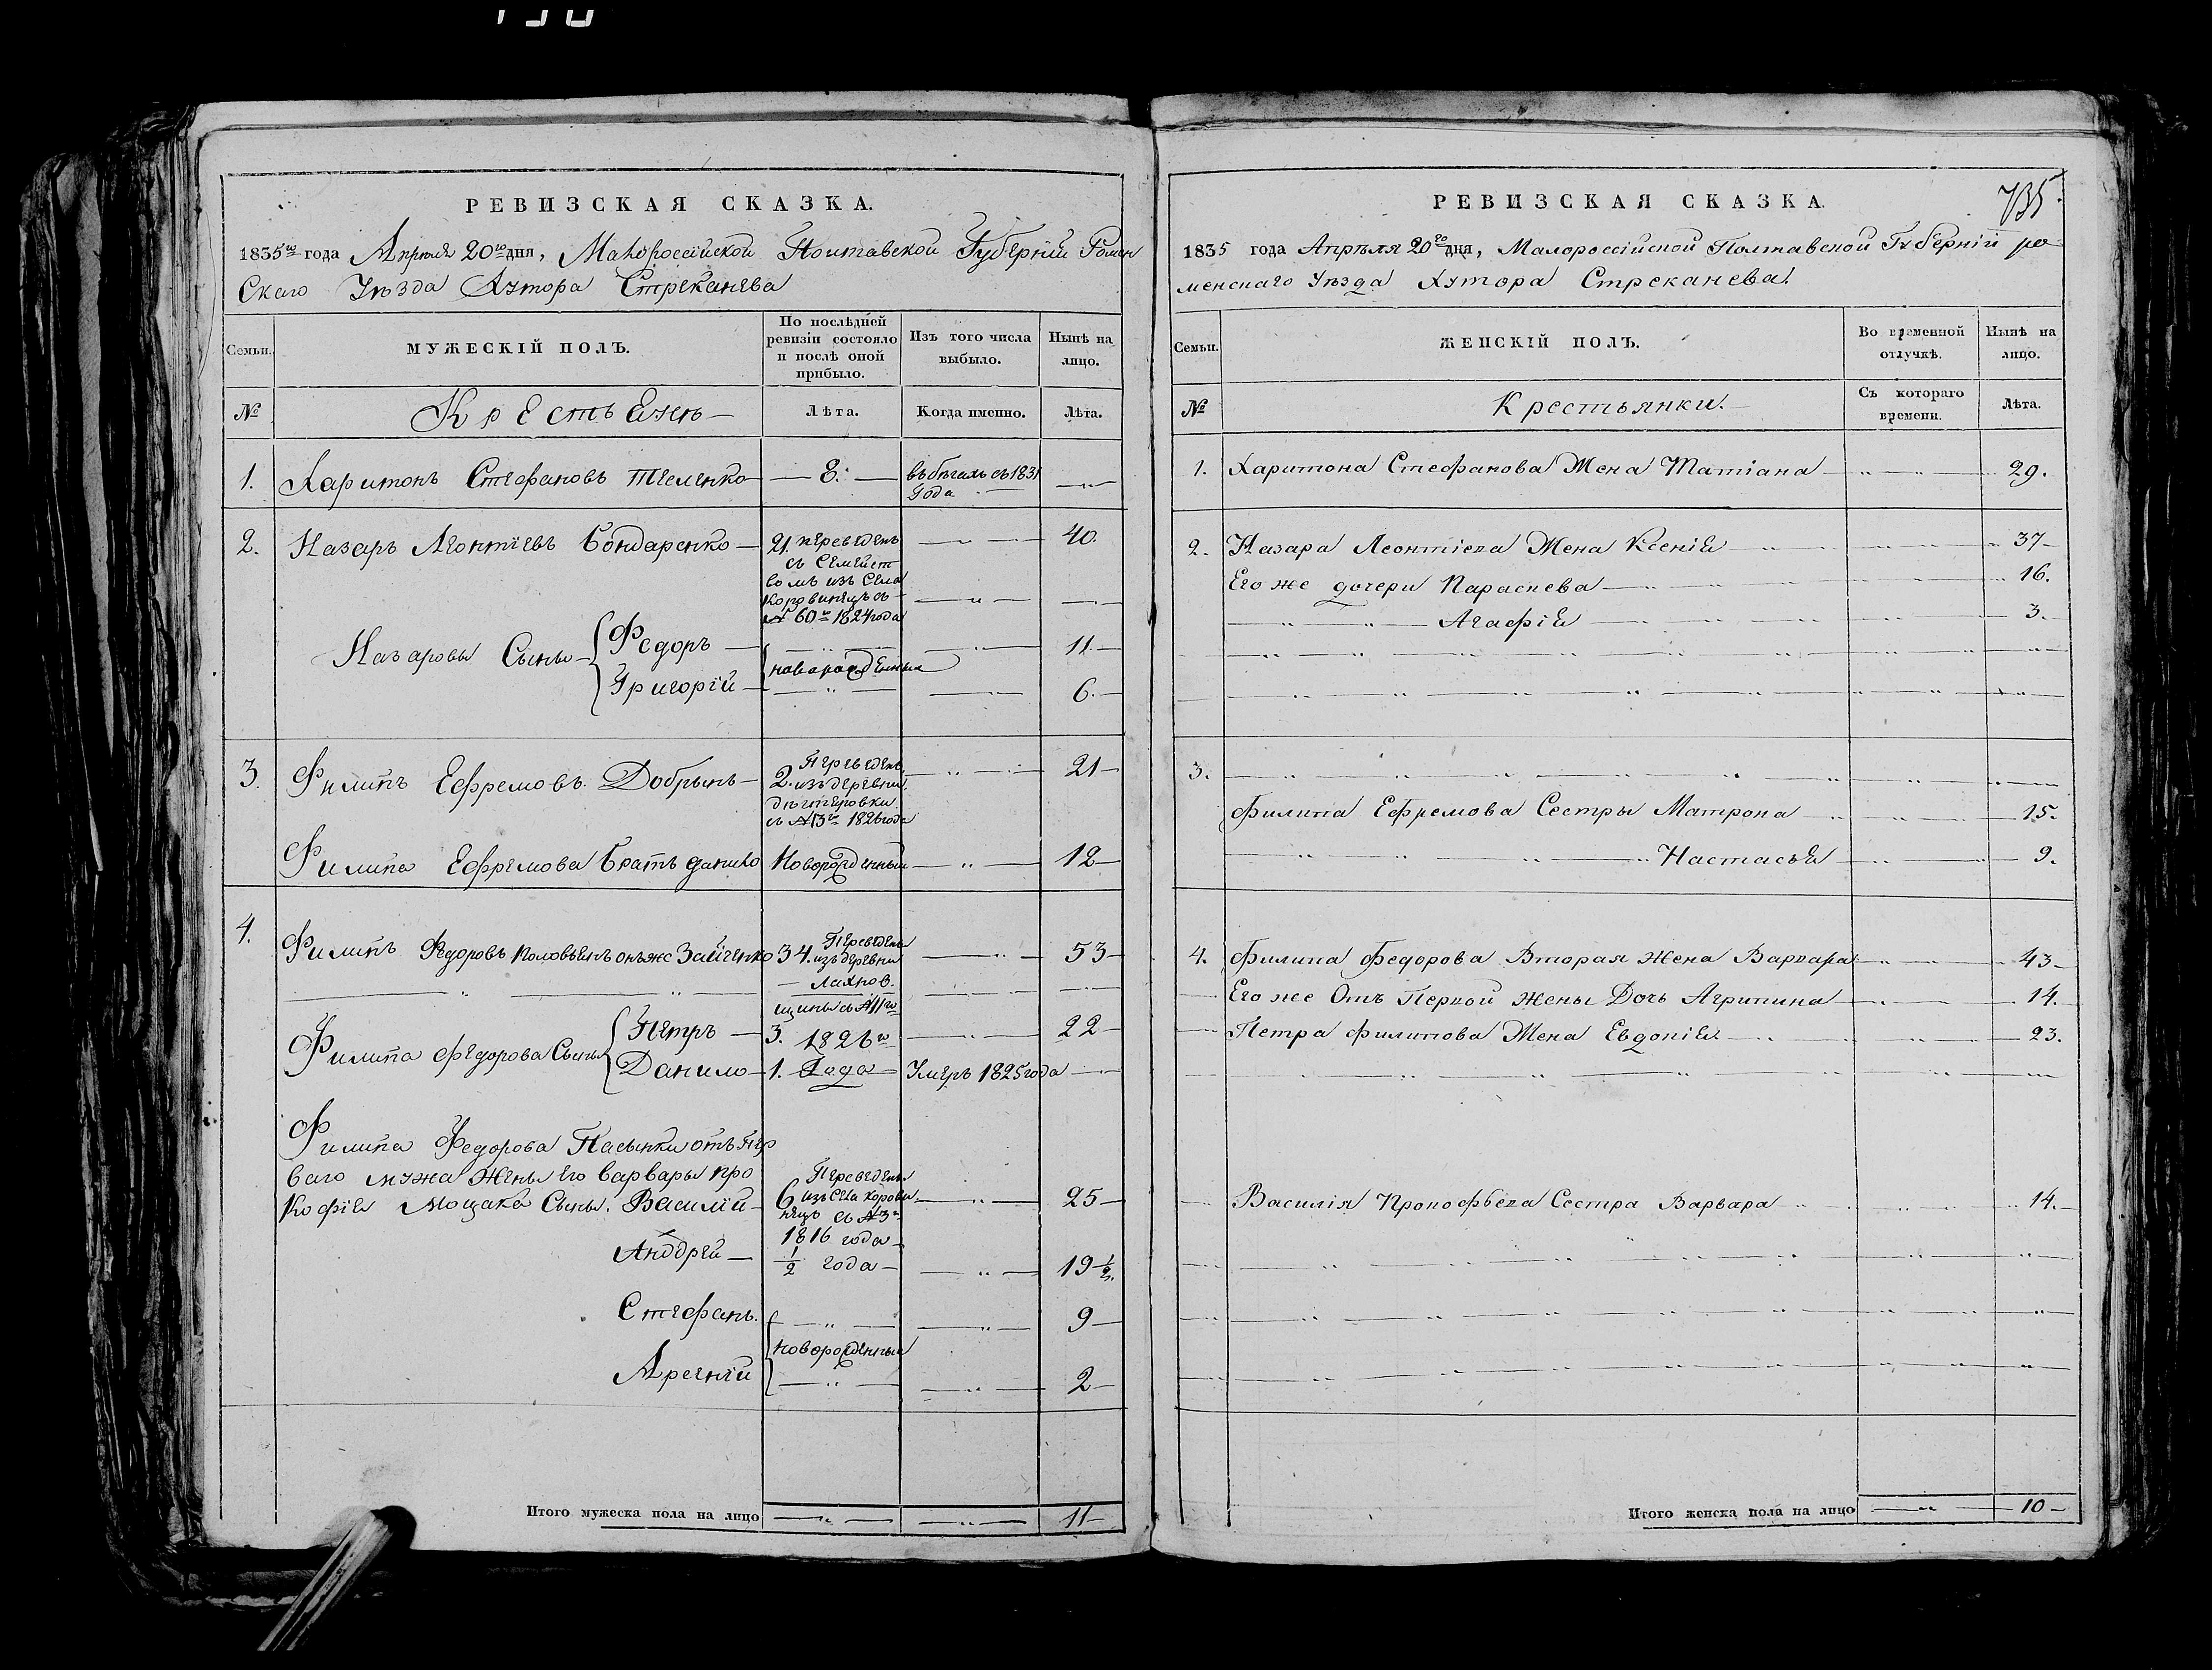 РЕВИЗСКАЯ СКАЗКА.
1835го года Апреля 20го дня, Малороссійской Полтавской Губерніи Ромен
Скаго Уѣзда Хутора Стреканева
Семьи.
МУЖЕСКІЙ ПОЛЪ.
По послѣдней ревизіи состояло и послѣ оной прибыло.
Изъ того числа выбыло.
Нынѣ на лицо.
№
Крестьяне
Лѣта.
Когда именно.
Лѣта.
1. Харитонъ Стефановъ Теленко — 8. — въ бегахъ съ 1831 года
2. Назаръ Леонтіевъ Бондаренко — 21. переведенъ — 40.
съ Семейст
вомъ изъ Села
Коровинецъ съ
№ 60го 1824 года
Назаровы Сыны Федоръ — 11
новорожденные
Григорій — 6.
3. Филипъ Ефремовъ Добрынь — 2. Переведенъ изъ деревни — 21
съ №13го 1826 года
Филипа Ефремова братъ данило Новорожденный — 12
4. Филипъ Федоровъ Половьянъ онъже Зайченко 34. Переведенъ изъ деревни — 53
Лахнов.
щины съ №11го
Филипа Федорова Сыны Петръ — 3. 1826го — 22
Данило — 1. Года — Умеръ 1825 года
Филипа Федорова Пасынки отъ пер
ваго мужа Жены его варвары про
Кофія Мощака Сыны. Василій — 6 Переведены изъ Села Корови — 25
нецъ съ №3го
1816 года
Андрей — 1/2 года — 19 1/2.
Стефанъ. — 9
новорожденные
Арсеній — 2
Итого мужеска пола на лицо — 11
РЕВИЗСКАЯ СКАЗКА.
735.
1835 года Апрѣля 20го дня, Малороссійской Полтавской Губерніи ро
менскаго Уѣзда Хутора Стреканева.
Семьи.
ЖЕНСКІЙ ПОЛЪ.
Во временной отлучкѣ.
Нынѣ на лицо.
№
Крестьянки.
Съ котораго времени.
Лѣта.
1. Харитона Стефанова Жена Татіана — 29.
2. Назара Леонтіева Жена Ксенія — 37
Его же дочери Параскева — 16.
Агафія — 3.
3.
Филипа Ефремова Сестры Матрона — 15.
Настасья — 9.
4. Филипа Федорова Вторая Жена Варвара — 43
Его же Отъ Первой жены Дочь Агрипина — 14.
Петра Филипова Жена Евдокія — 23.
Василія Прокофьева Сестра Варвара — 14.
Итого женска пола на лицо — 10